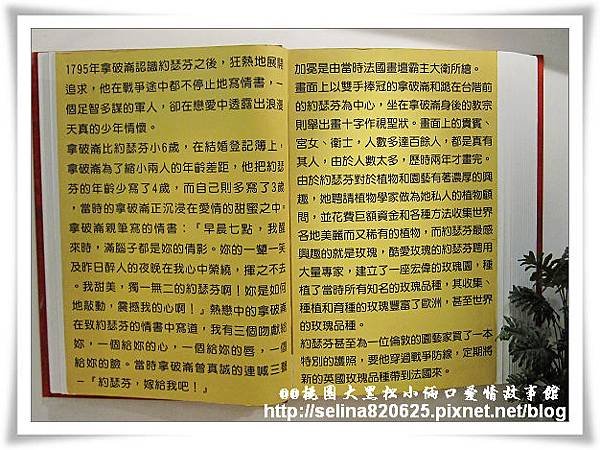 1795年拿破崙認識約瑟芬之後，狂熱地展開
追求，他在戰爭途中都不停止地寫情書，一
個足智多謀的軍人，卻在戀愛中透露出浪漫
天真的少年情懷。
拿破崙比約瑟芬小6歲，在結婚登記簿上，
拿破崙為了縮小兩人的年齡差距，他把約瑟
芬的年齡少寫了4歲，而自己則多寫了3歲
，當時的拿破崙正沉浸在愛情的甜蜜之中。
拿破崙親筆寫的情書：『早晨七點，我醒
來時，滿腦子都是妳的倩影。妳的一顰一笑
及昨日醉人的夜晚在我心中縈繞，揮之不去
。我甜美，獨一無二的約瑟芬啊！妳是如何
地敲動，震撼我的心啊！』熱戀中的拿破崙
在致約瑟芬的情書中寫道，我有三個吻獻給
妳，一個給妳的心，一個給妳的唇，一個
給妳的臉。當時拿破崙曾真誠的連喊三聲
－『約瑟芬，嫁給我吧！』
加冕是由當時法國畫壇霸主大衛所繪。
畫面上以雙手捧冠的拿破崙和跪在台階前
的約瑟芬為中心，坐在拿破崙身後的教宗
則舉出畫十字作視聖狀。畫面上的貴賓、
宮女、衛士，人數多達百餘人，都是真有
其人，由於人數太多，歷時兩年才畫完。
由於約瑟芬對於植物和園藝有著濃厚的興
趣，她聘請植物學家做為她私人的植物顧
問，並花費巨額資金和各種方法收集世界
各地美麗而又稀有的植物，而約瑟芬最感
興趣的就是玫瑰，酷愛玫瑰的約瑟芬聘用
大量專家，建立了一座宏偉的玫瑰園，種
植了當時所有知名的玫瑰品種，其收集、
種植和育種的玫瑰豐富了歐洲，甚至世界
的玫瑰品種。
約瑟芬甚至為一位倫敦的園藝家買了一本
特別的護照，要他穿過戰爭防線，定期將
新的英國玫瑰品種帶到法國來。
@@桃園大黑松小倆口愛情故事館
http://selina820625.pixnet.net/blog